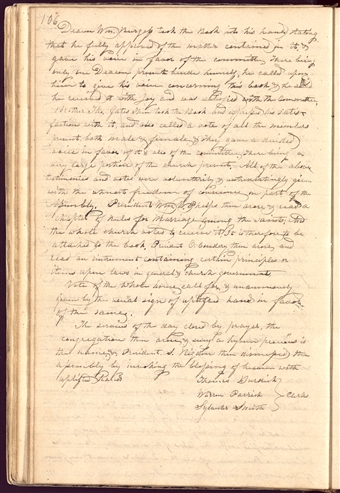 106
Deacon Wm Burgess took the Book into his hand, stating
that he fully approved of the matter contained in it &
gave his voice in favor of the committee. There being
only one Deacon present besides himself, he called upon
him to give his voice concerning this book, & he said
he received it with joy and was satisfied with the committee.
Brother Jno. Gates then took the Book and expressed his satis-
faction with it, and also called a vote of all the members
present, both male & female, & They gave a decided
voice in favor of it & also of the committee. There being a
very large portion of the church present. All of the above
testimonies and votes were voluntarily & unhesitatingly given
with the utmost freedom of on part of the
Assembly. President Wm W. Phelps then arose & read a
chapter of Rules for Marriage among the saints, And
the whole church voted to receive it. So therefore to be
attached to the book, Pesident O. Cowdery then arose, and
read an instrument containing certain principles or
items upon laws in general & church governments
Vote of the whole house call for, & unanimously
given by the usual sign of uplifted hand in favor
of the same.
The services of the day closed by prayer, the
congregation then arose, & sung a hymn previous is
that honor, & President S. Rigdon then dismissed the
assembly by invoking the blessing of heaven with
uplifted hands
Thomas Burdick
Warren Parrish } Clerks
Sylvester Smith